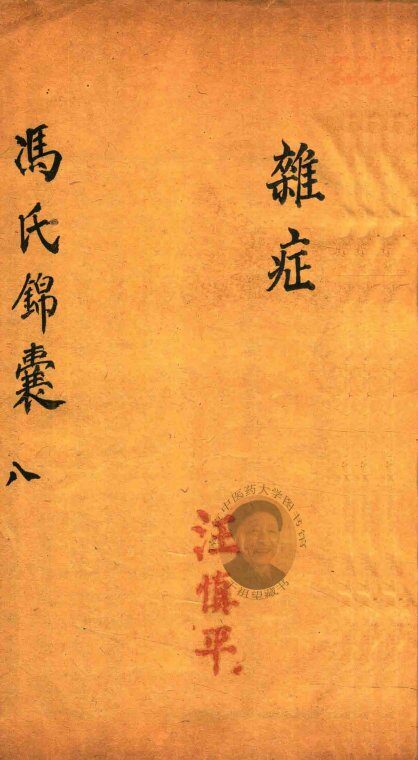 雜症
中医药大学图书馆
祖望藏书
汪慎平
馮氏錦囊 八